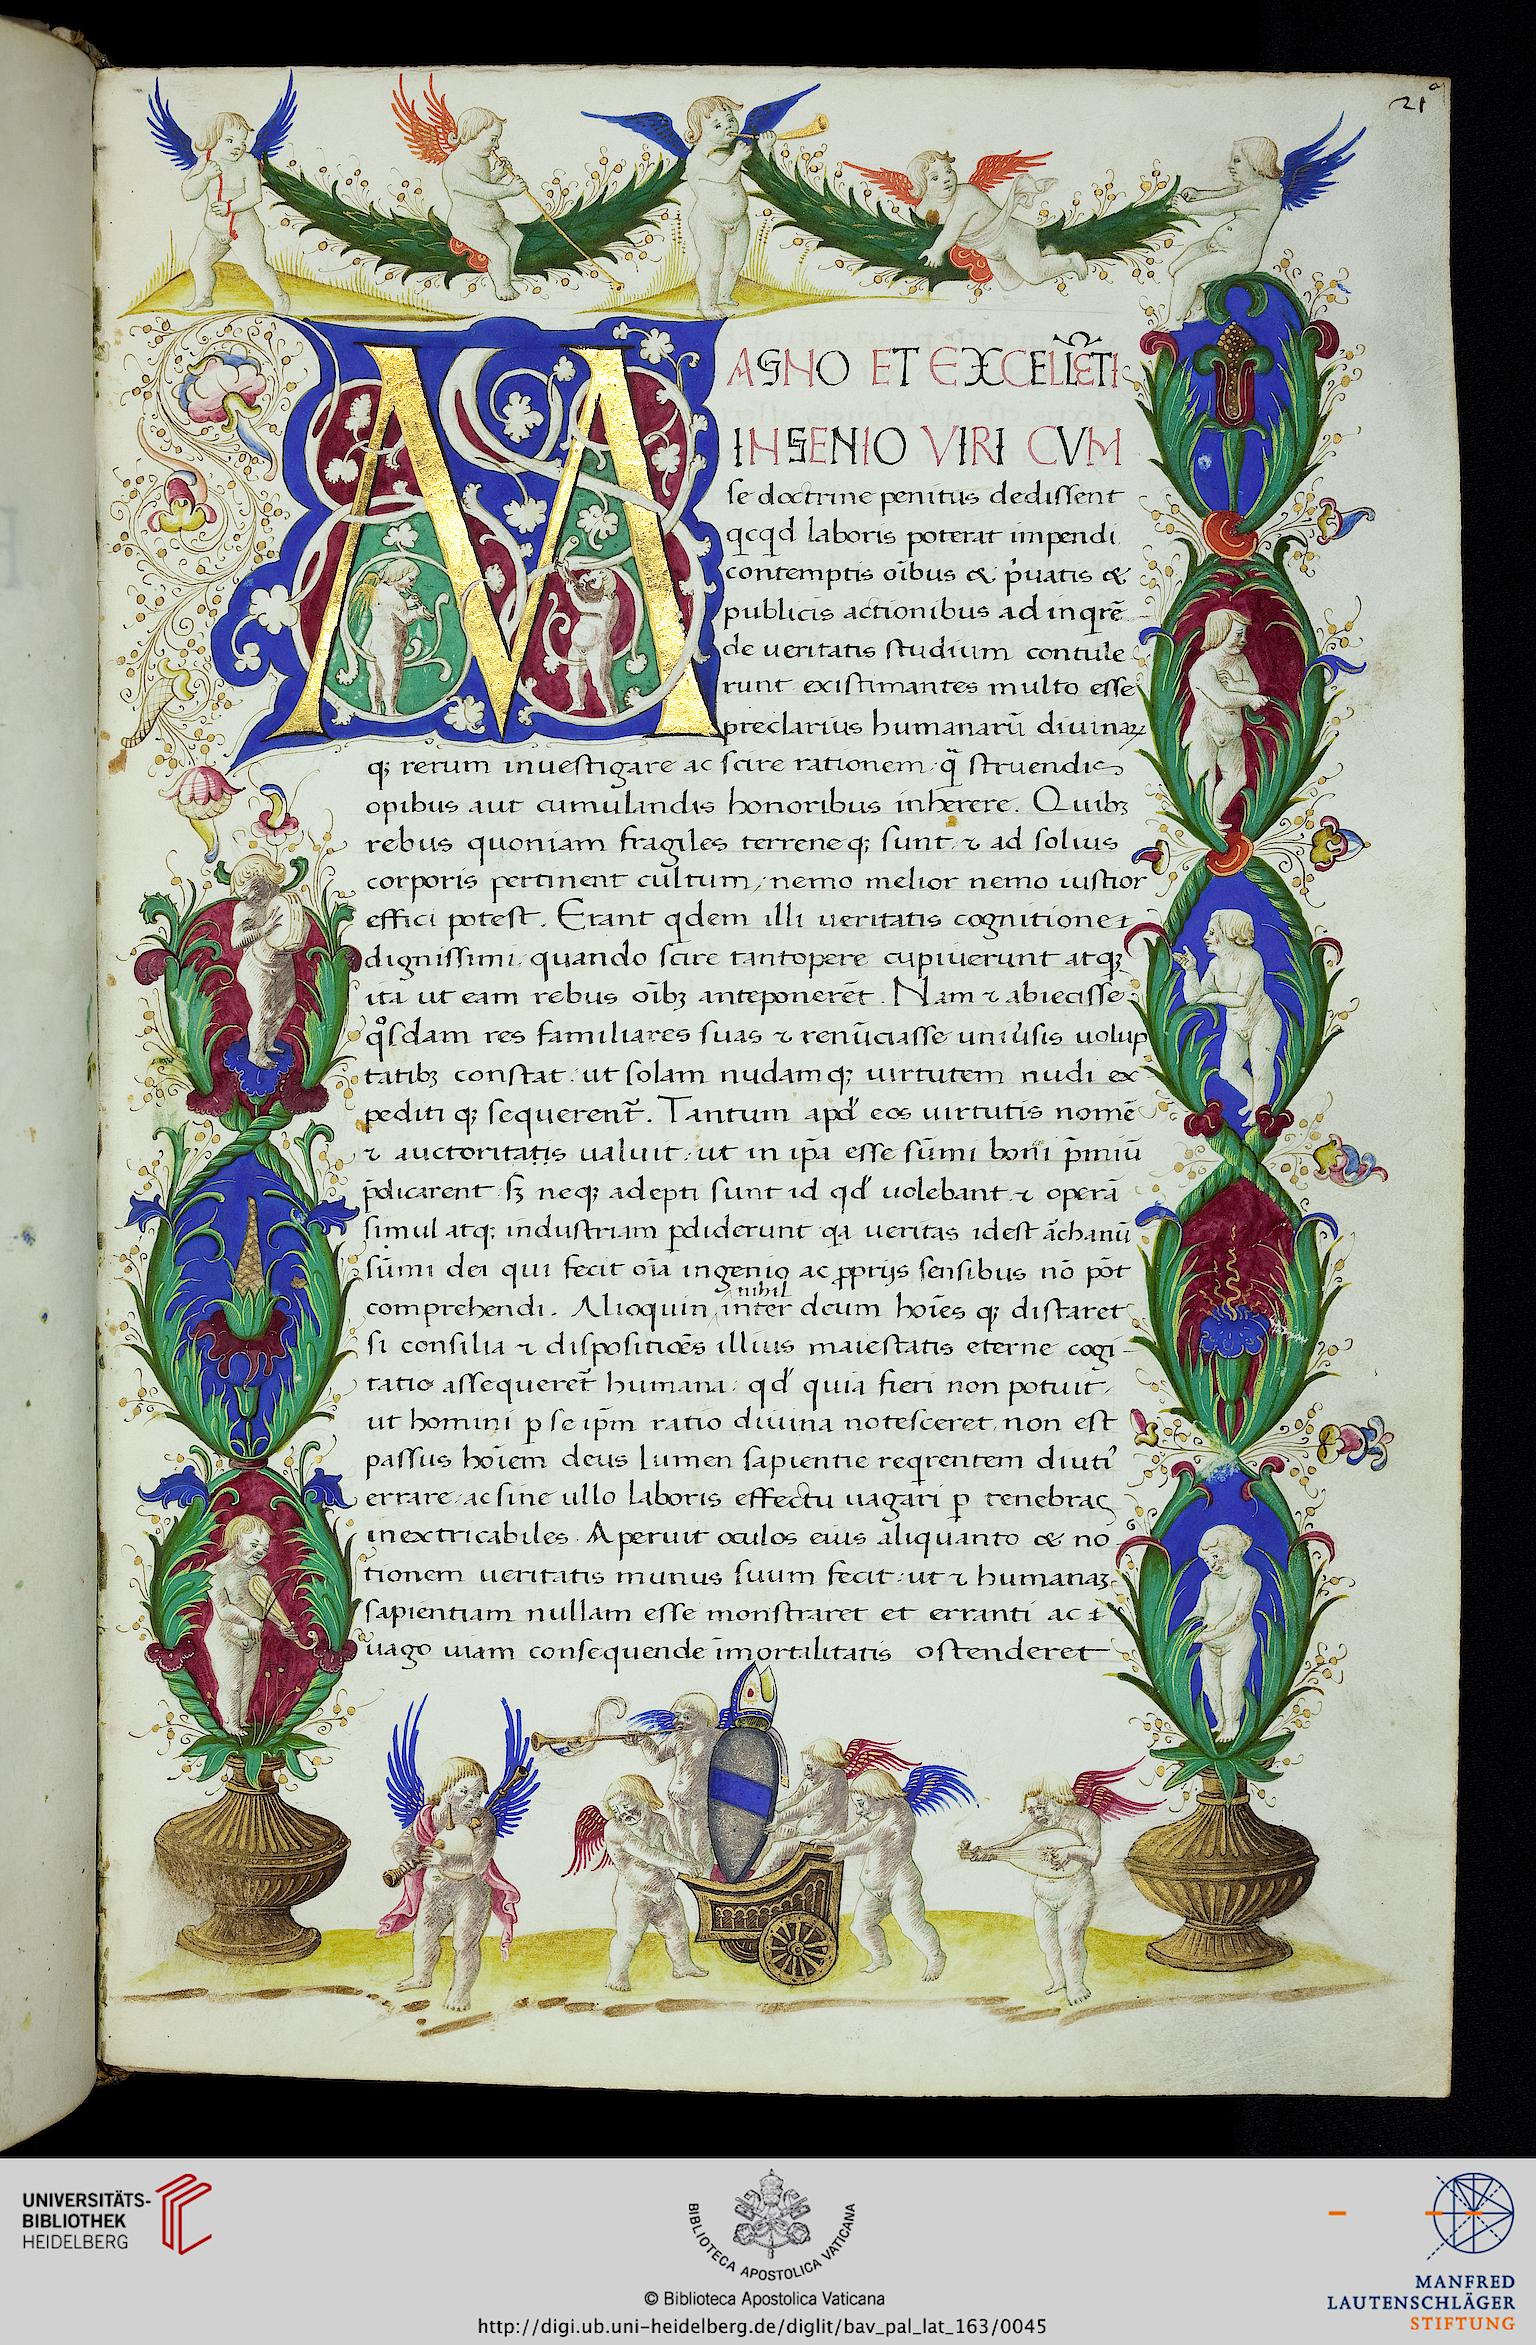 21
MAGNO ET EXCELLE̅TI
INGENIO VIRI CVM
se doctrine penitus dedissent
qcqd laboris poterat impendi
contemptis oi̅bus & p̍uatis &
publicis actionibus ad inqre̅
de ueritatis studium contule
runt existimantes multo esse
preclarius humanaru̅ diuinaꝝ
q; rerum inuestigare ac scire rationem q̃ struendis
opibus aut cumulandis honoribus inherere. Quibꝫ
rebus quoniam fragiles terreneq; sunt ⁊ ad solius
corporis pertinent cultum, nemo melior nemo iustior
effici potest. Erant qdem illi ueritatis cognitione
dignissimi quando scire tantopere cupiuerunt atq;
ita ut eam rebus oi̅bꝫ anteponere̅t. Nam ⁊ abiecisse
qͦsdam res familiares suas ⁊ renu̅ciasse uniu̍sis uolup
tatibꝫ constat ut solam nudamq; uirtutem nudi ex
pediti q; sequerent̃. Tantum apd̍ eos uirtutis nome̅
⁊ auctoritatis ualuit ut in ip̅a esse su̅mi boni p̅miu̅
p̅dicarent sꝫ neq; adepti sunt id qd̍ uolebant ⁊ opera̅
simul atq; industriam ꝑdiderunt qa ueritas idest a̅rchanu̅
su̅mi dei qui fecit oi̅a ingenio ac ꝓprijs sensibus no̅ po̅t
comprehendi. Alioquin nihil inter deum hoi̅es q; distaret
si consilia ⁊ dispositio̅es illius maiestatis eterne cogi-
tatio assequeret̃ humana qd̍ quia fieri non potuit
ut homini ꝑ se ip̅m ratio diuina notesceret, non est
passus hoi̅em deus lumen sapientie reqrentem diuti᾽
errare ac sine ullo laboris effectu uagari ꝑ tenebras
inextricabiles. Aperuit oculos eius aliquanto & no
tionem ueritatis munus suum fecit ut ⁊ humanaꝫ
sapientiam nullam esse monstraret et erranti ac
uago uiam consequende i̅mortalitatis ostenderet
UNIVERSITÄTS-
BIBLIOTHEK
HEIDELBERG
BIBLIOTECA APOSTOLICA VATICANA
© Biblioteca Apostolica Vaticana
http://digi.ub.uni-heidelberg.de/diglit/bav_pal_lat_163/0045
MANFRED
LAUTENSCHLÄGER
STIFTUNG